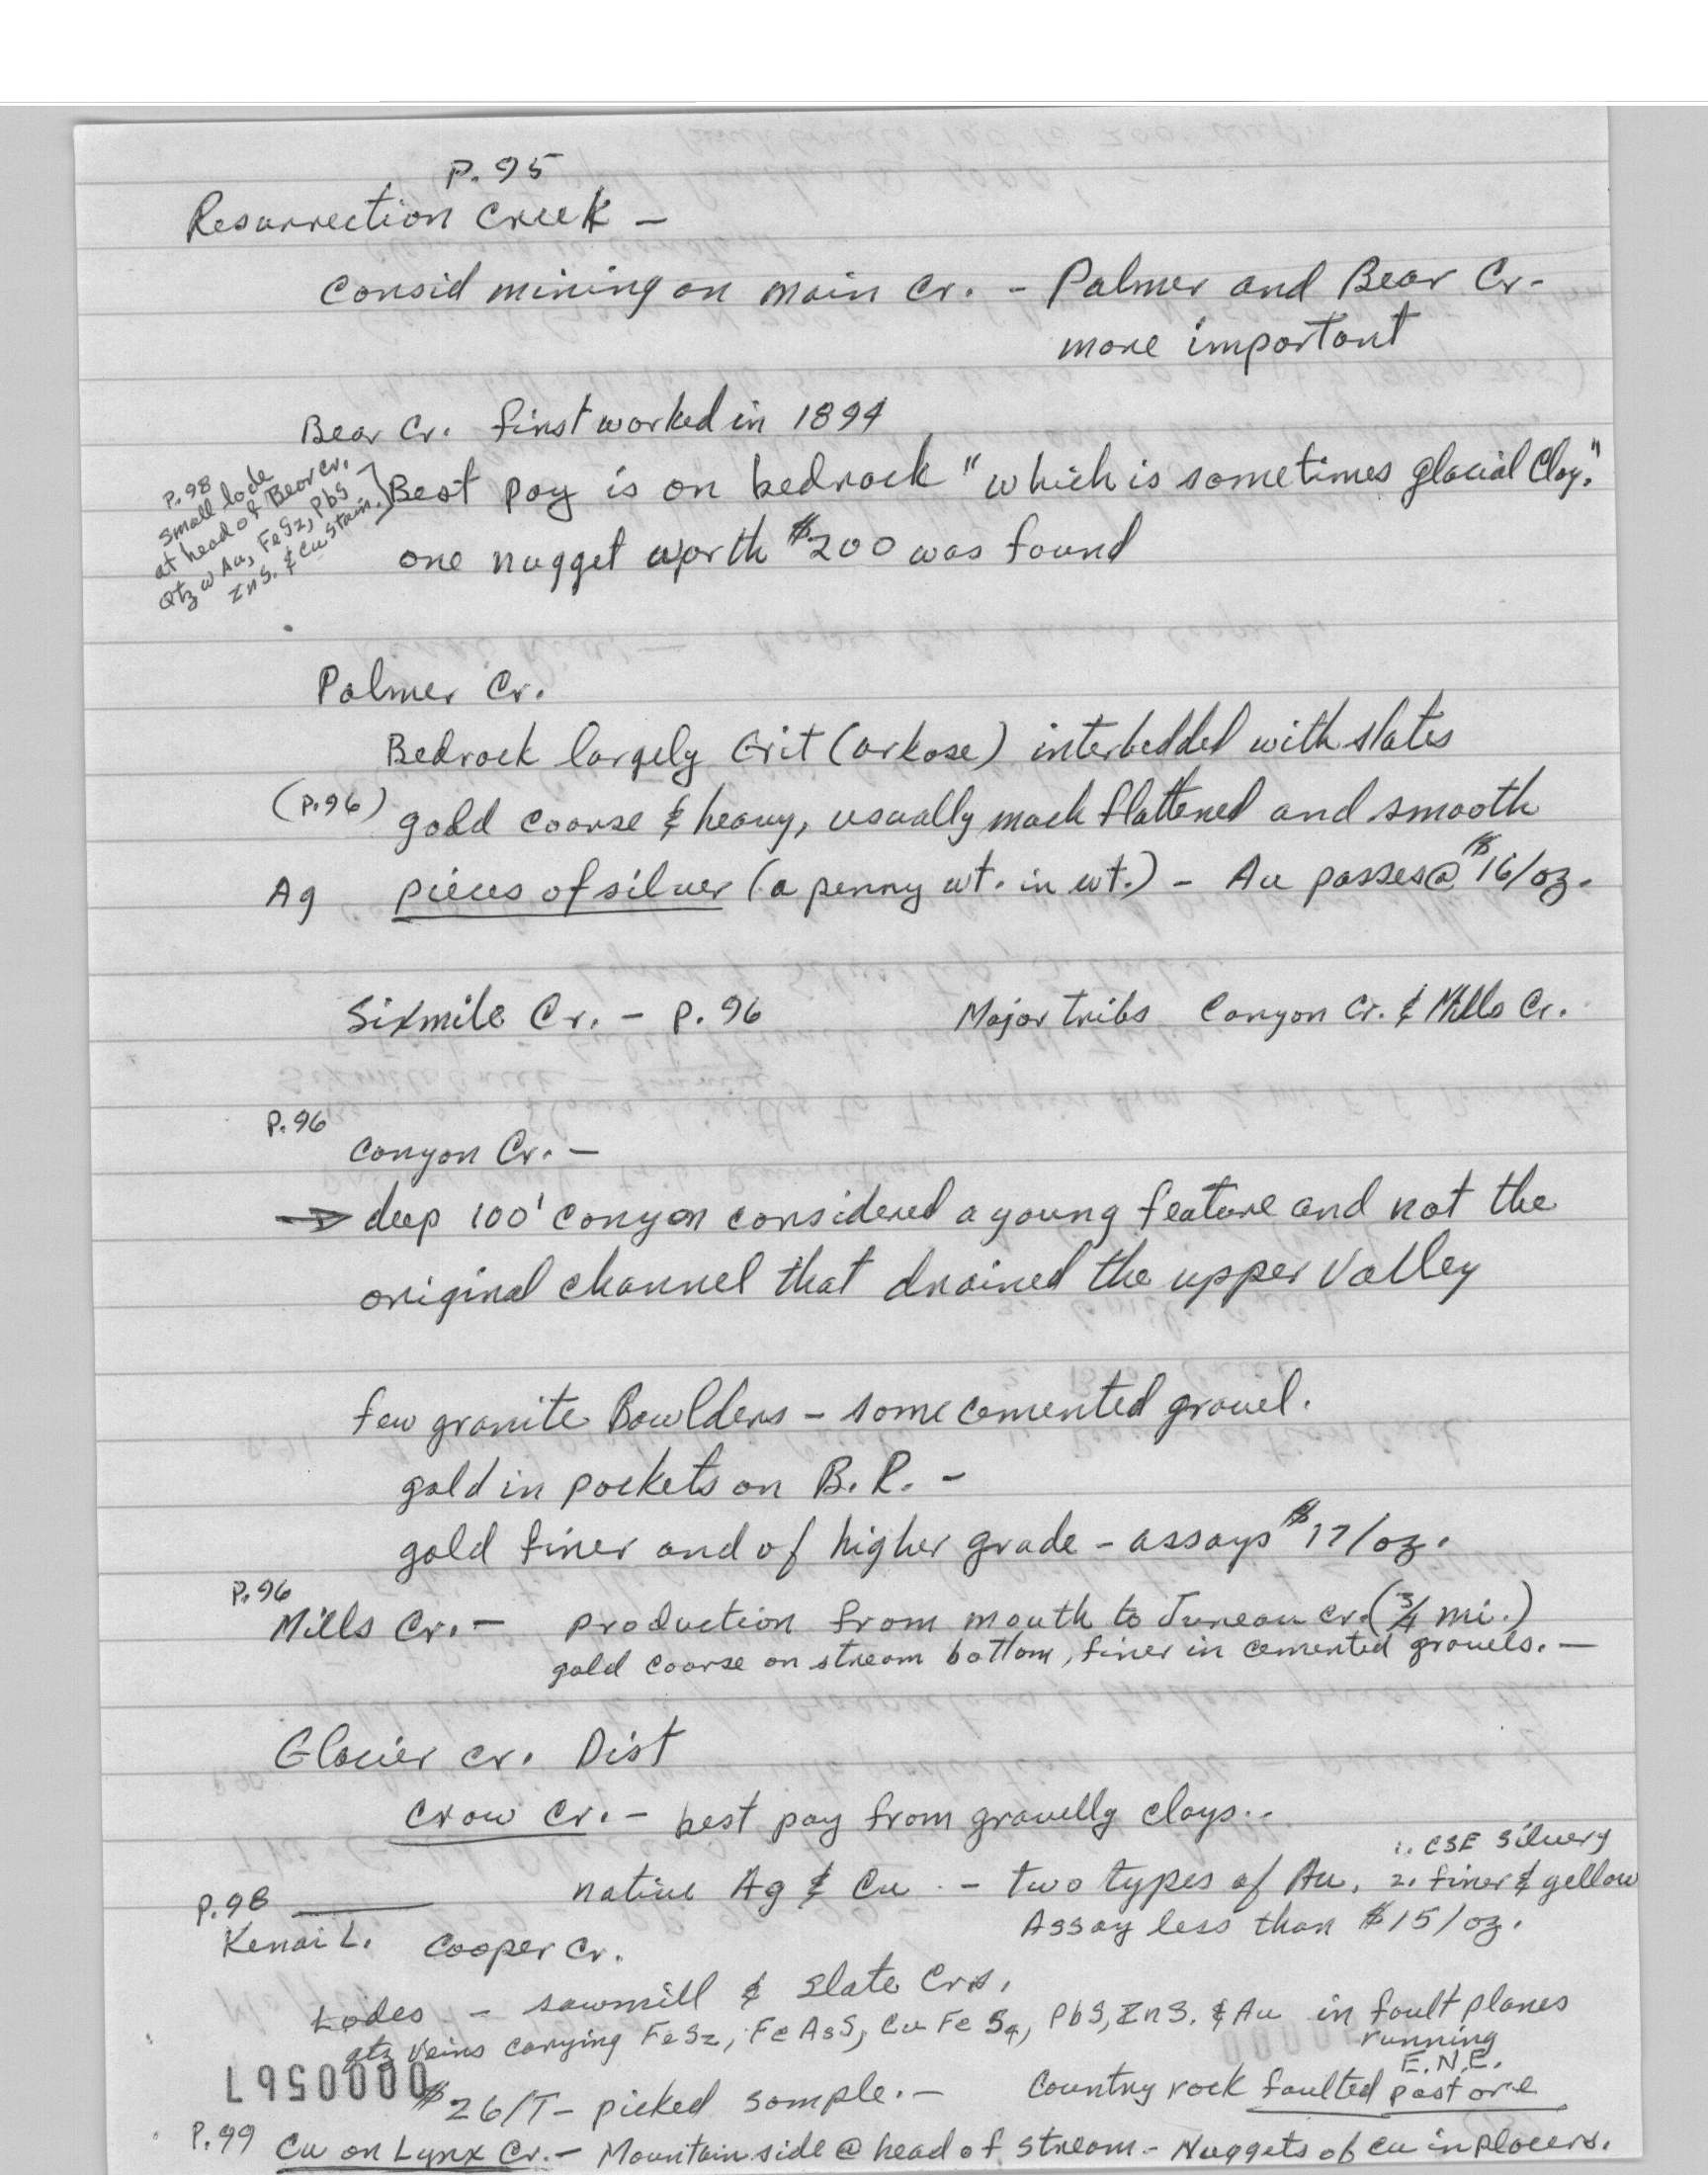 P.95
Resurrection Creek –
Consid mining on main Cr. – Palmer and Bear Cr-
more important
Bear Cr. first worked in 1894
P.98
Small lode
at head of Bear Cr.
Qtz w Au, FeS2, PbS
ZnS. & Cu stain.
Best pay is on bedrock "which is sometimes glacial Clay."
one nugget worth $200 was found
Palmer Cr.
Bedrock largely Grit (arkose) interbedded with slates
(P.96) gold coarse & heavy, usually much flattened and smooth
Ag pieces of silver (a penny wt. in wt.) – Au passes @ $16/oz.
Sixmile Cr. – P.96 Major tribs Canyon Cr. & Mills Cr.
P.96
Canyon Cr. –
→ deep 100' canyon considered a young feature and not the
original channel that drained the upper Valley
few granite Bowlders – some cemented gravel.
gold in pockets on B.R. –
gold finer and of higher grade – assays $17/oz.
P.96
Mills Cr. – production from mouth to Juneau Cr. (3/4 mi.)
gold coarse on stream bottom, finer in cemented gravels. –
Glacier Cr. Dist
Crow Cr. – best pay from gravelly clays..
native Ag & Cu. – two types of Au, 1. CSE Silvery
2. finer & yellow
Assay less than $15/oz.
P.98
Kenai L. Cooper Cr.
Lodes – Sawmill & Slate Crs.
qtz veins carrying FeS2, FeAsS, CuFeS2, PbS, ZnS. & Au in fault planes
running
E.N.E.
$26/T – picked sample. – Country rock faulted past ore
00000567
P.99 Cu on Lynx Cr. – Mountain side @ head of stream – Nuggets of Cu in placers.